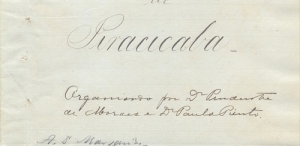 de
Piracicaba
Organisado por Dr Prudente
de Moraes e Dr Paula Pinto.
A. S.